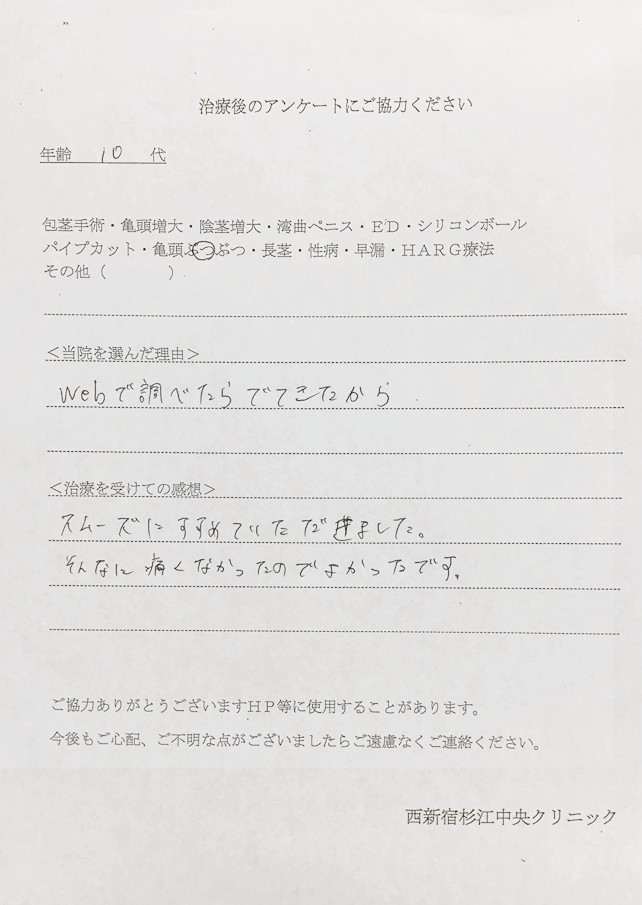 治療後のアンケートにご協力ください
年齢 10 代
包茎手術・亀頭増大・陰茎増大・湾曲ペニス・ED・シリコンボール
パイプカット・亀頭ぶつぶつ・長茎・性病・早漏・HARG療法
その他（　　　　）
＜当院を選んだ理由＞
Webで調べたらでてきたから
＜治療を受けての感想＞
スムーズにすすめていただきました。
そんなに痛くなかったのでよかったです。
ご協力ありがとうございますHP等に使用することがあります。
今後もご心配、ご不明な点がございましたらご遠慮なくご連絡ください。
西新宿杉江中央クリニック